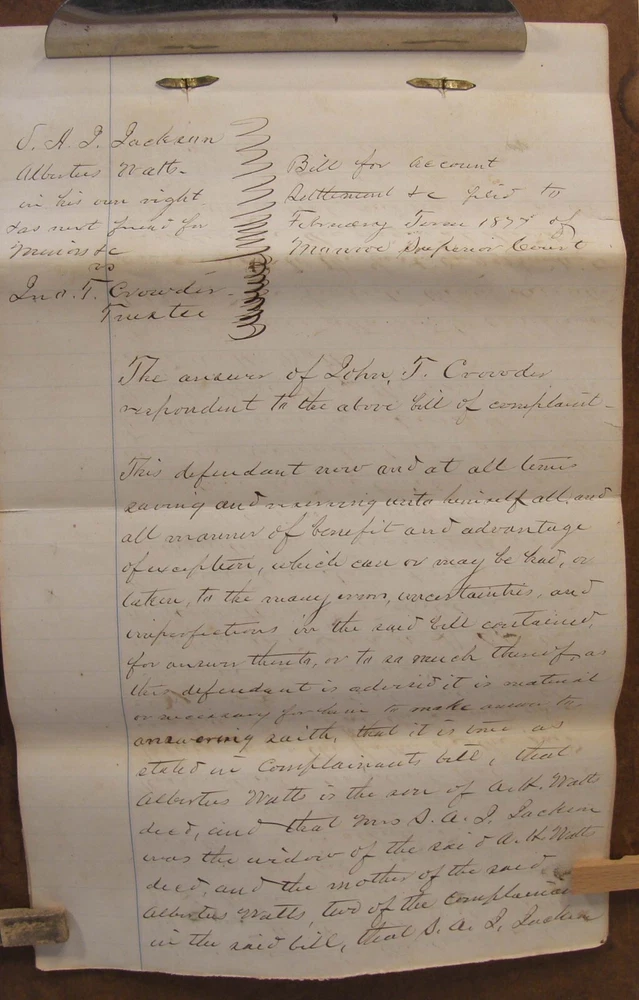 S. A. J. Jackson
Albertus Watts
in his own right
& as next friend for
Minors &c
vs
Jno. T. Crowder
Trustee
Bill for account
Settlement &c filed to
February Term of
Monroe Superior Court
The answer of John T. Crowder
respondent to the above bill of complaint
This defendant now and at all times
saving and reserving unto himself all and
all manner of benefit and advantage
of exception, which can or may be had, or
taken, to the many errors, uncertainties, and
imperfections in the said bill contained,
for answer thereto, or to so much thereof, as
this defendant is advised it is material
or necessary for him to make answer to
answering saith, that it is true as
stated in Complainants bill, that
Albertus Watts is the son of A. H. Watts
decd, and that Mrs S. A. J. Jackson
was the widow of the said A. H. Watts
decd, and the mother of the said
Albertus Watts, two of the Complainants
in the said bill, that S. A. J. Jackson